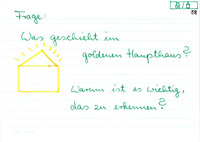 Frage:
Was geschieht im
goldenen Haupthaus?
Warum ist es wichtig,
das zu erkennen?